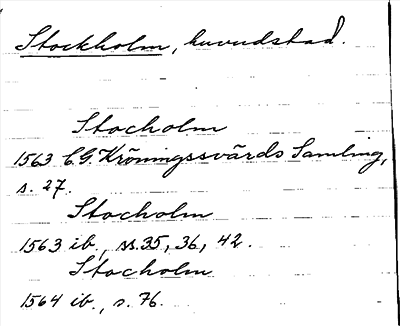 Stockholm, huvudstad.
Stocholm
1563 C.G. Kröningssvärds Samling,
s. 27.
Stocholm
1563 ib., ss. 35, 36, 42.
Stocholm
1564 ib., s. 76.